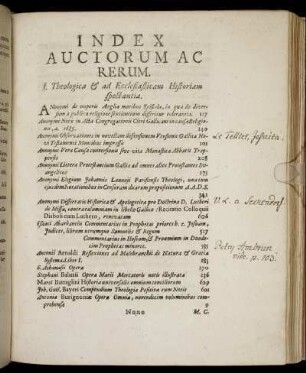 INDEX
AUCTORUM AC
RERUM.
§. Theologica & ad Ecclesiasticam Historiam
spectantia.
ANonymi de corrupta Angliæ moribus Epistola, in qua de Deter-
a publica religione tolerantia 117
Anonymi Notæ in Acta Congregationis Cleri Gallicani circa religio-
nem, a. 1685. 140
Anonymi Observationes in novellam defensionem Versionis Gallicæ No-
vi Testamenti Montibus impressæ 101
Anonymi Vera Causa conversionis sive vita Monastica Abbatis Trap-
pensis 208
Anonymi Literæ Protestantium Galliæ ad omnes alios Protestantes Ev-
angelicos 175
Anonymi Elogium Johannis Launoii Parisiensis Theologi, una cum
ejusdem notationibus in Censuram duarum propositionum A.A.D.S.
341
Anonymi Dissertatio Historica & Apologetica pro Doctrina D. Lutheri
de Missa, contra calumniam in libello Gallico: Recueil Colloquii
Diaboli cum Luthero, renovatam 606
Isaaci Abarbanelis Commentarius in Prophetas priores h. e. Josuam,
Judices, libros utrumque Samuelis & Regum 517
Commentarius in Hoseam & Proœmium in Duode-
cim Prophetas minores. 517
Antonii Arnaldi Reflexiones ad Malebranchii de Natura & Gratia
Systema. Liber I. 183
S. Athanasii Opera 170
Stephani Baluzii Opera Marii Mercatoris notis illustrata 136
Marci Battaglini Historia universalis omnium conciliorum 609
Joh. Guil. Bayeri Compendium Theologiæ Positivæ cum Notis 601
Antonia Opera Omnia, novendecim voluminibus com-
prehensa 9
Nnnn M. C.
Le Tellier, Jesuita.
V. L. a Seckendorf.
vid. p. 103.